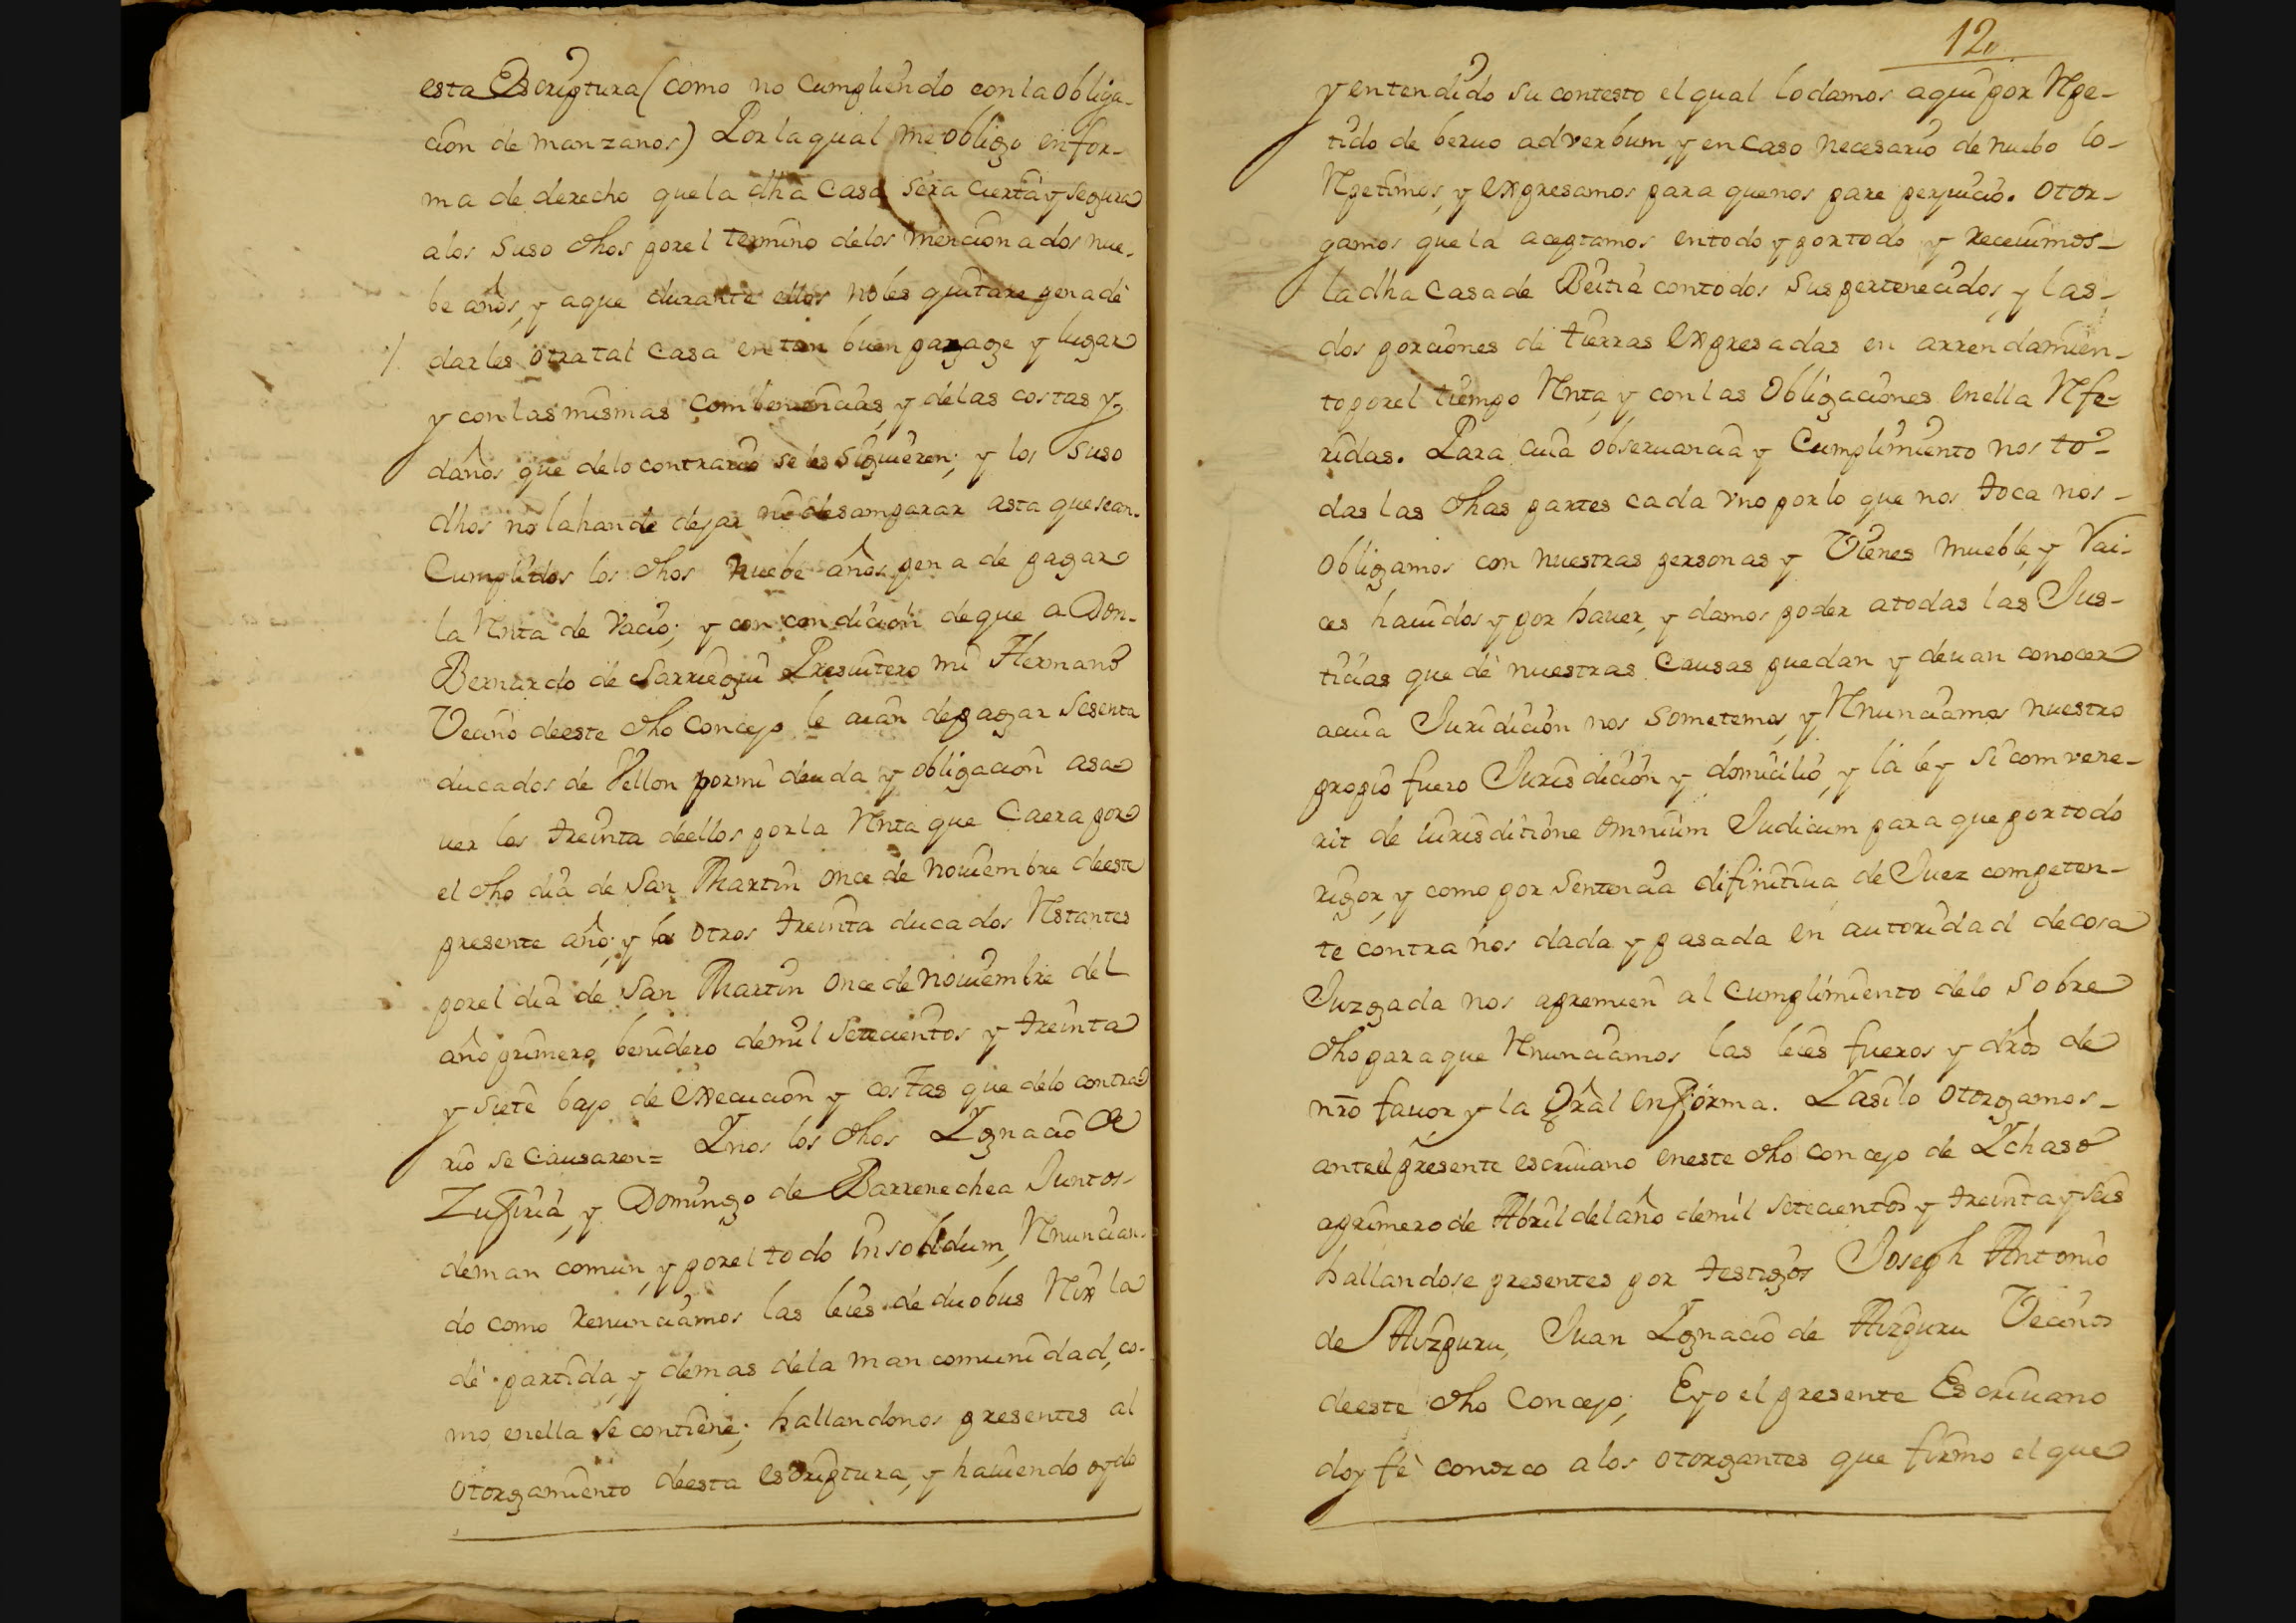 esta Escriptura (como no Cumpliendo con la obliga-
cion de manzanos) Por la qual me obligo en for-
ma de derecho que la dha Casa sera cierta y segura
a los suso dhos por el termino de los mencionados nue-
be años, y a que durante ellos no les quitare pena de
darles otra tal Casa en tan buen parage y lugar
y con las mismas combeniencias, y de las costas y
daños que de lo contrario se les siguieren; y los suso
dhos no la han de dejar ni desamparar asta que sean
Cumplidos los dhos nuebe años, pena de pagar
la Renta de vacio; y con condicion de que a Don
Bernardo de Sarriegui Presuitero mi Hermano
Vecino de este dho Concejo le aian de pagar sesenta
ducados de Vellon por mi deuda y obligacion asa-
uer los treinta de ellos por la Renta que Caera por
el dho dia de San Martin once de Nouiembre de este
presente año; y los otros treinta ducados Restantes
por el dia de San Martin once de nouiembre del
año primero benidero de mil setecientos y treinta
y siete bajo de execucion y costas que de lo contra
rio se Causaren= Y nos los dhos Ygnacio de
Zufiria, y Domingo de Barrenechea Juntos
de man comun, y por el todo insolidum, Renuncian-
do como Renunciamos las leies de duobus Rex la
de partida, y demas de la mancomunidad, co-
mo en ella se contiene; hallandonos presentes al
otorgamiento de esta escriptura, y hauiendo oydo
12
y entendido su contesto el qual lo damos aqui por Repe-
tido de beruo ad verbum y en caso necesario de nuebo lo
Repetimos, y expresamos para que nos pare perjuicio. Otor-
gamos que la aceptamos en todo y por todo y Receuimos
la dha Casa de Beitia con todos sus pertenecidos, y las
dos porciones de tierras expresadas en arrendamien-
to por el tiempo Renta, y con las obligaciones en ella Refe-
ridas. Para cuia obseruancia y Cumplimiento nos to-
das las dhas partes cada vno por lo que nos toca nos
obligamos con nuestras personas y Vienes mueble, y Rai-
ces hauidos y por hauer, y damos poder a todas las Jus-
ticias que de nuestras Causas puedan y deuan conocer
a cuia Juridicion nos sometemos, y Renunciamos nuestro
propio fuero Jurisdicion y domicilio, y la ley si comvene-
rit de iurisditione omnium Judicum para que por todo
rigor, y como por Sentencia difinitiua de Juez competen-
te contra nos dada y pasada en autoridad de cosa
Juzgada nos apremien al Cumplimiento de lo sobre
dho para que Renunciamos las leies fueros y dros de
nro fauor y la Gral en forma. Y asi lo otorgamos
ante el presente escriuano en este dho Concejo de Ychaso
a primero de Abril del año de mil setecientos y treinta y seis
hallandose presentes por testigos Joseph Antonio
de Aizpuru, Juan Ygnacio de Aizpuru Vecinos
de este dho Concejo; E yo el presente Escriuano
doy fe conozco a los otorgantes que firmo el que